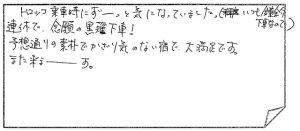 トロッコ乗車時にずーっと気になっていました。(いつも
下車なので)
連休で、念願の黒薙下車!
予想通りの素朴でかざり気のない宿で、大満足です。
また来るーーーす。